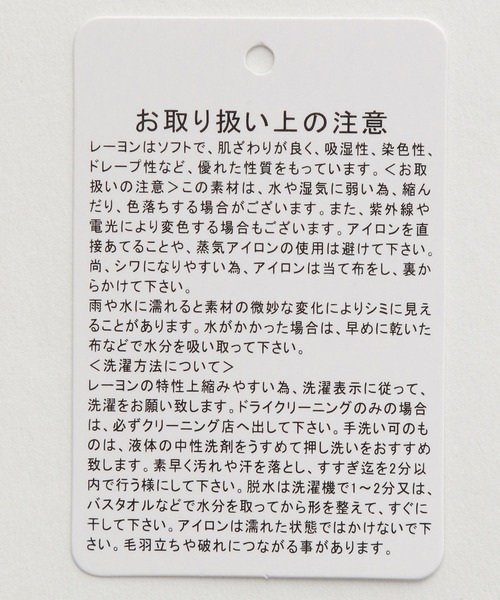 お取り扱い上の注意
レーヨンはソフトで、肌ざわりが良く、吸湿性、染色性、
ドレープ性など、優れた性質をもっています。＜お取
扱いの注意＞この素材は、水や湿気に弱い為、縮ん
だり、色落ちする場合がございます。また、紫外線や
電光により変色する場合もございます。アイロンを直
接あてることや、蒸気アイロンの使用は避けて下さい。
尚、シワになりやすい為、アイロンは当て布をし、裏か
らかけて下さい。
雨や水に濡れると素材の微妙な変化によりシミに見え
ることがあります。水がかかった場合は、早めに乾いた
布などで水分を吸い取って下さい。
＜洗濯方法について＞
レーヨンの特性上縮みやすい為、洗濯表示に従って、
洗濯をお願い致します。ドライクリーニングのみの場合
は、必ずクリーニング店へ出して下さい。手洗い可のも
のは、液体の中性洗剤をうすめて押し洗いをおすすめ
致します。素早く汚れや汗を落とし、すすぎ迄を2分以
内で行う様にして下さい。脱水は洗濯機で1～2分又は、
バスタオルなどで水分を取ってから形を整えて、すぐに
干して下さい。アイロンは濡れた状態ではかけないで下
さい。毛羽立ちや破れにつながる事があります。